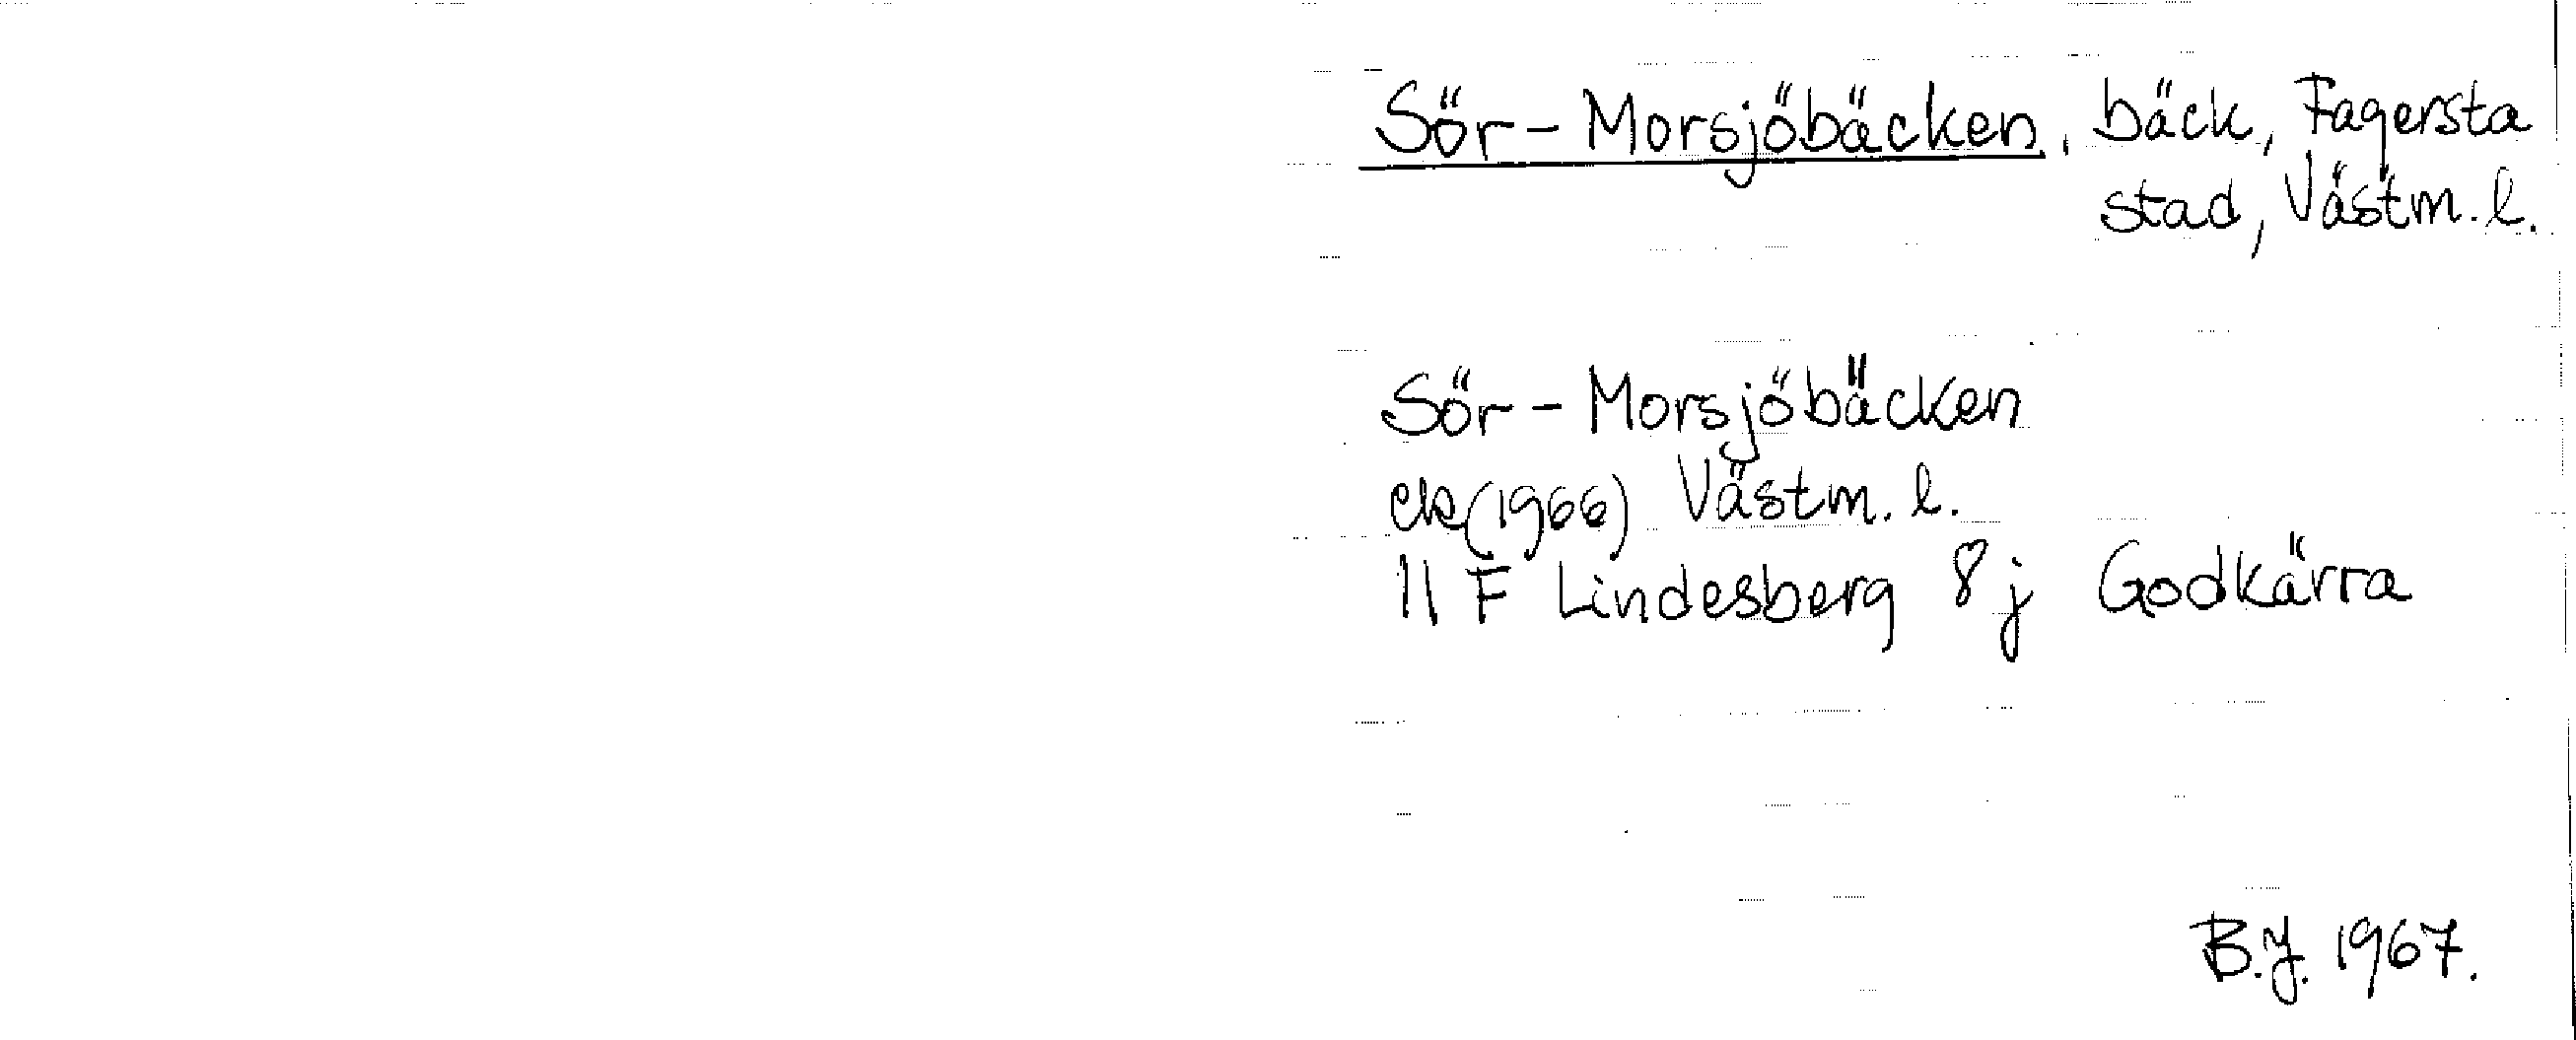 Sör-Morsjöbäcken, bäck, Fagersta
stad, Västm. l.
Sör-Morsjöbäcken
ek (1966) Västm. l.
11 F Lindesberg 8 j Godkärra
B.J. 1967.